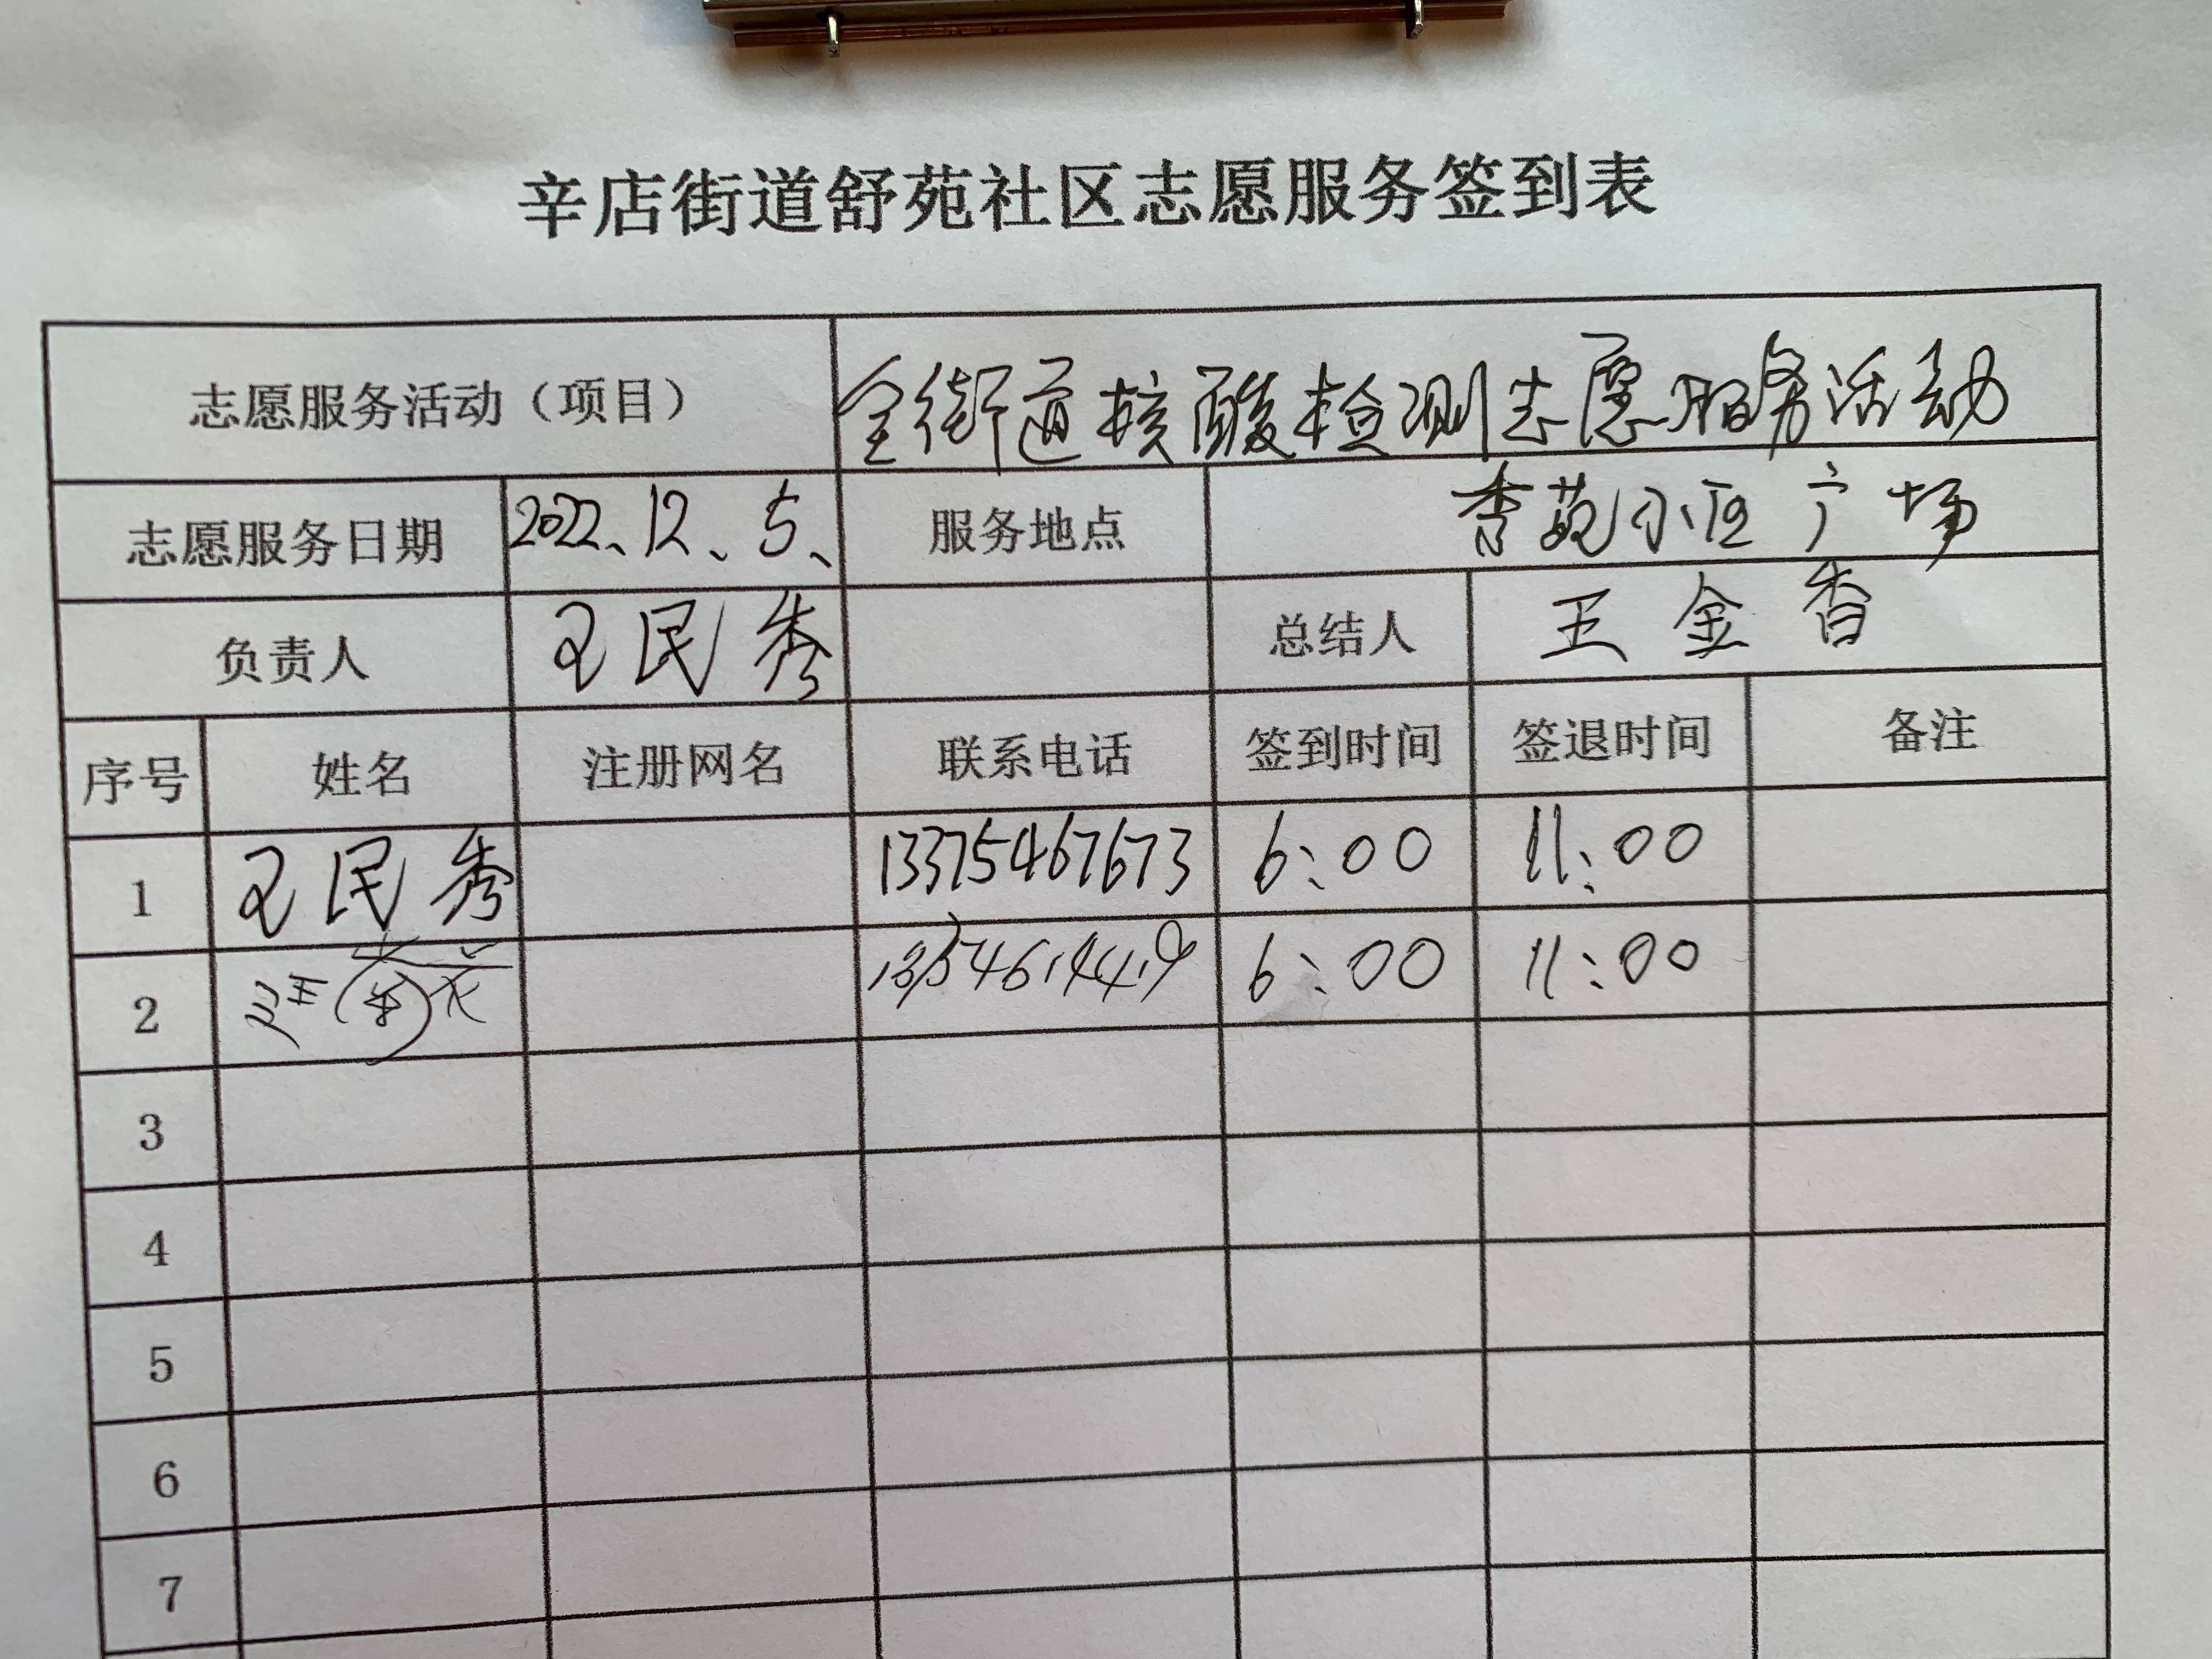 辛店街道舒苑社区志愿服务签到表
志愿服务活动（项目） 全街道核酸检测志愿服务活动
志愿服务日期 2022、12、5、 服务地点 香苑小区广场
负责人 王民秀 总结人 王金香
序号 姓名 注册网名 联系电话 签到时间 签退时间 备注
1 王民秀 13375467673 6:00 11:00
2 6:00 11:00
3
4
5
6
7